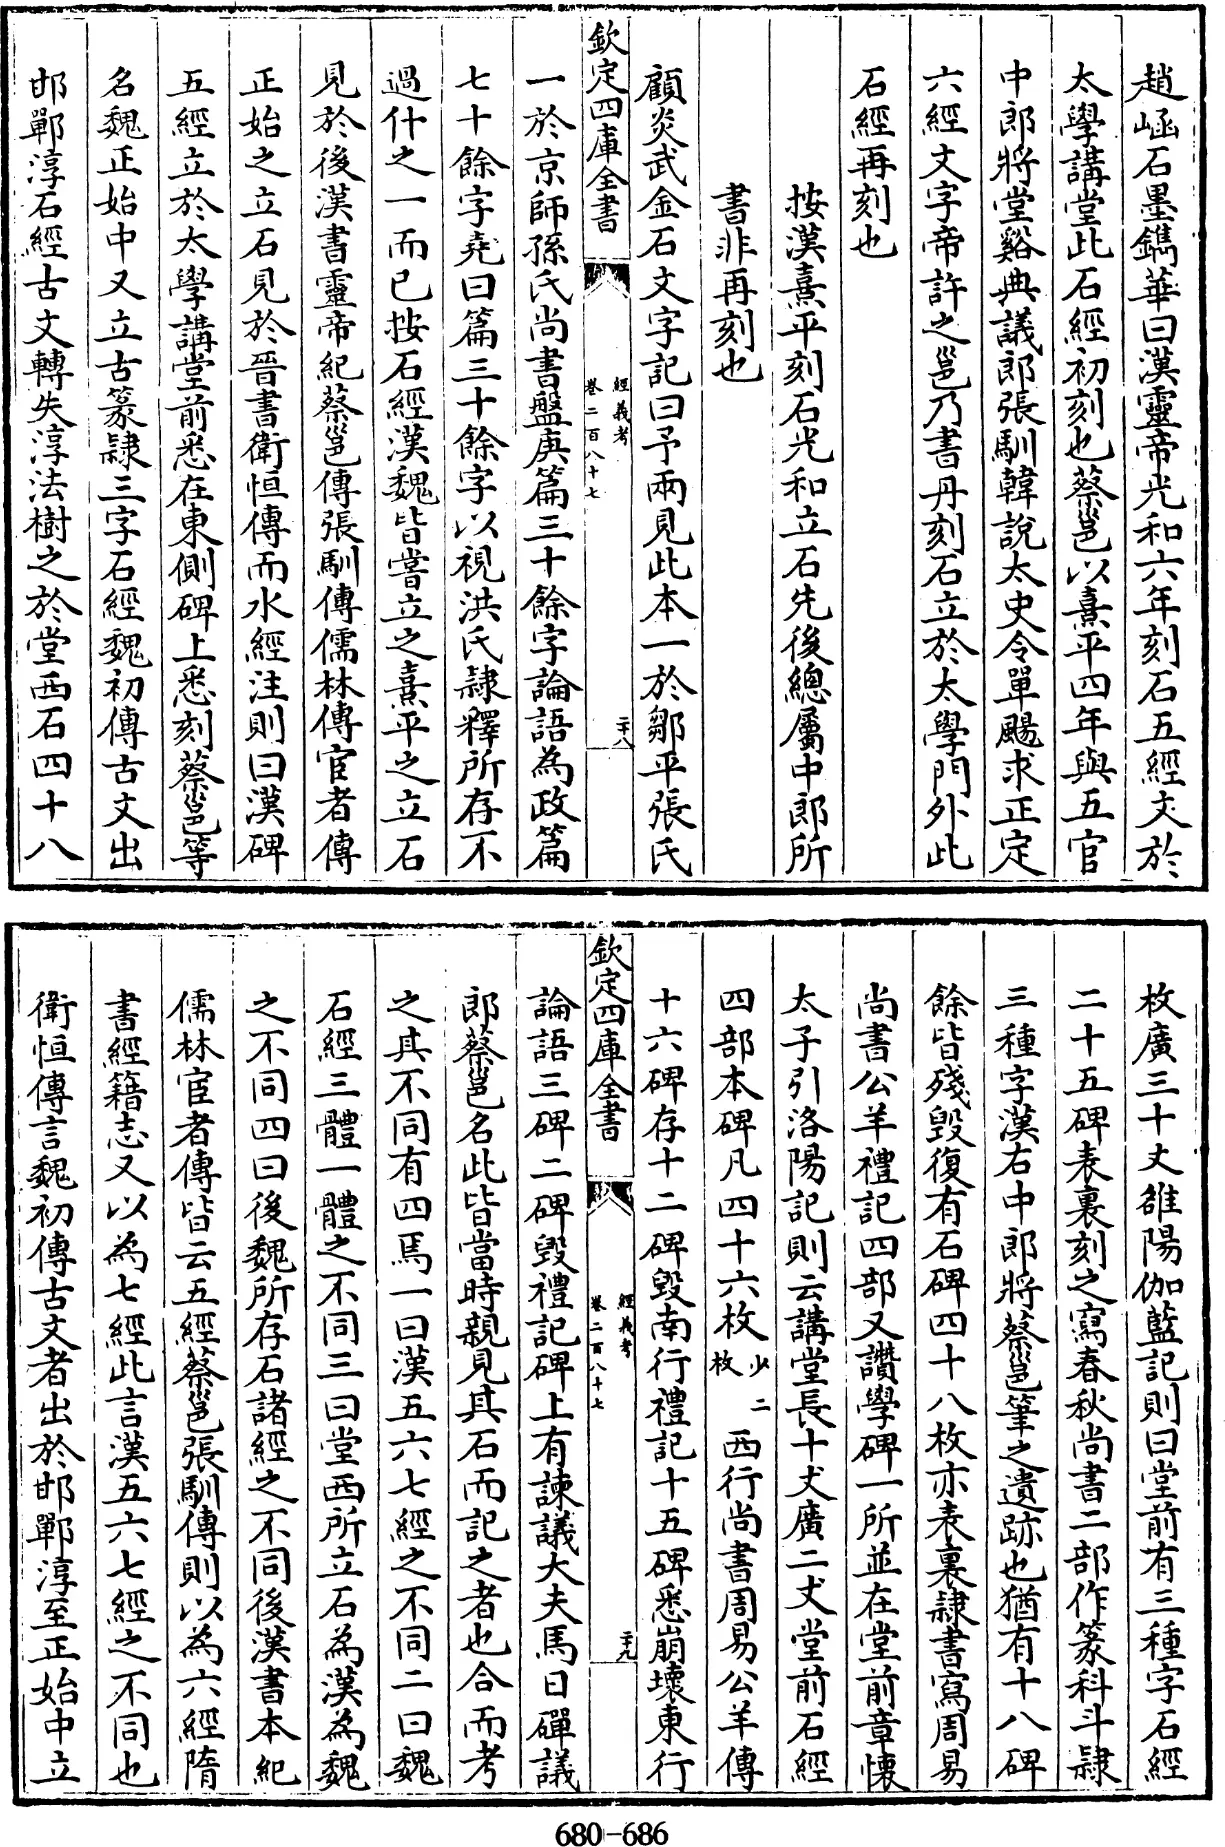 趙崡石墨鐫華曰漢靈帝光和六年刻石五經文於
太學講堂此石經初刻也蔡邕以熹平四年與五官
中郎將堂谿典議郎張馴韓說太史令單颺求正定
六經文字帝許之邕乃書丹刻石立於太學門外此
石經再刻也
按漢熹平刻石光和立石先後總屬中郎所
書非再刻也
顧炎武金石文字記曰予兩見此本一於鄒平張氏
欽定四庫全書
經義考
卷二百八十七
二十八
一於京師孫氏尚書盤庚篇三十餘字論語為政篇
七十餘字堯曰篇三十餘字以視洪氏隸釋所存不
過什之一而已按石經漢魏皆嘗立之熹平之立石
見於後漢書靈帝紀蔡邕傳張馴傳儒林傳宦者傳
正始之立石見於晉書衛恒傳而水經注則曰漢碑
五經立於太學講堂前悉在東側碑上悉刻蔡邕等
名魏正始中又立古篆隸三字石經魏初傳古文出
邯鄲淳石經古文轉失淳法樹之於堂西石四十八
枚廣三十丈雒陽伽藍記則曰堂前有三種字石經
二十五碑表裏刻之寫春秋尚書二部作篆科斗隸
三種字漢右中郎將蔡邕筆之遺跡也猶有十八碑
餘皆殘毀復有石碑四十八枚亦表裏隸書寫周易
尚書公羊禮記四部又讚學碑一所並在堂前章懷
太子引洛陽記則云講堂長十丈廣二丈堂前石經
四部本碑凡四十六枚少二枚西行尚書周易公羊傳
十六碑存十二碑毀南行禮記十五碑悉崩壞東行
欽定四庫全書
經義考
卷二百八十七
二十九
論語三碑二碑毀禮記碑上有諫議大夫馬日磾議
郎蔡邕名此皆當時親見其石而記之者也合而考
之其不同有四焉一曰漢五六七經之不同二曰魏
石經三體一體之不同三曰堂西所立石為漢為魏
之不同四曰後魏所存石諸經之不同後漢書本紀
儒林宦者傳皆云五經蔡邕張馴傳則以為六經隋
書經籍志又以為七經此言漢五六七經之不同也
衛恒傳言魏初傳古文者出於邯鄲淳至正始中立
680-686